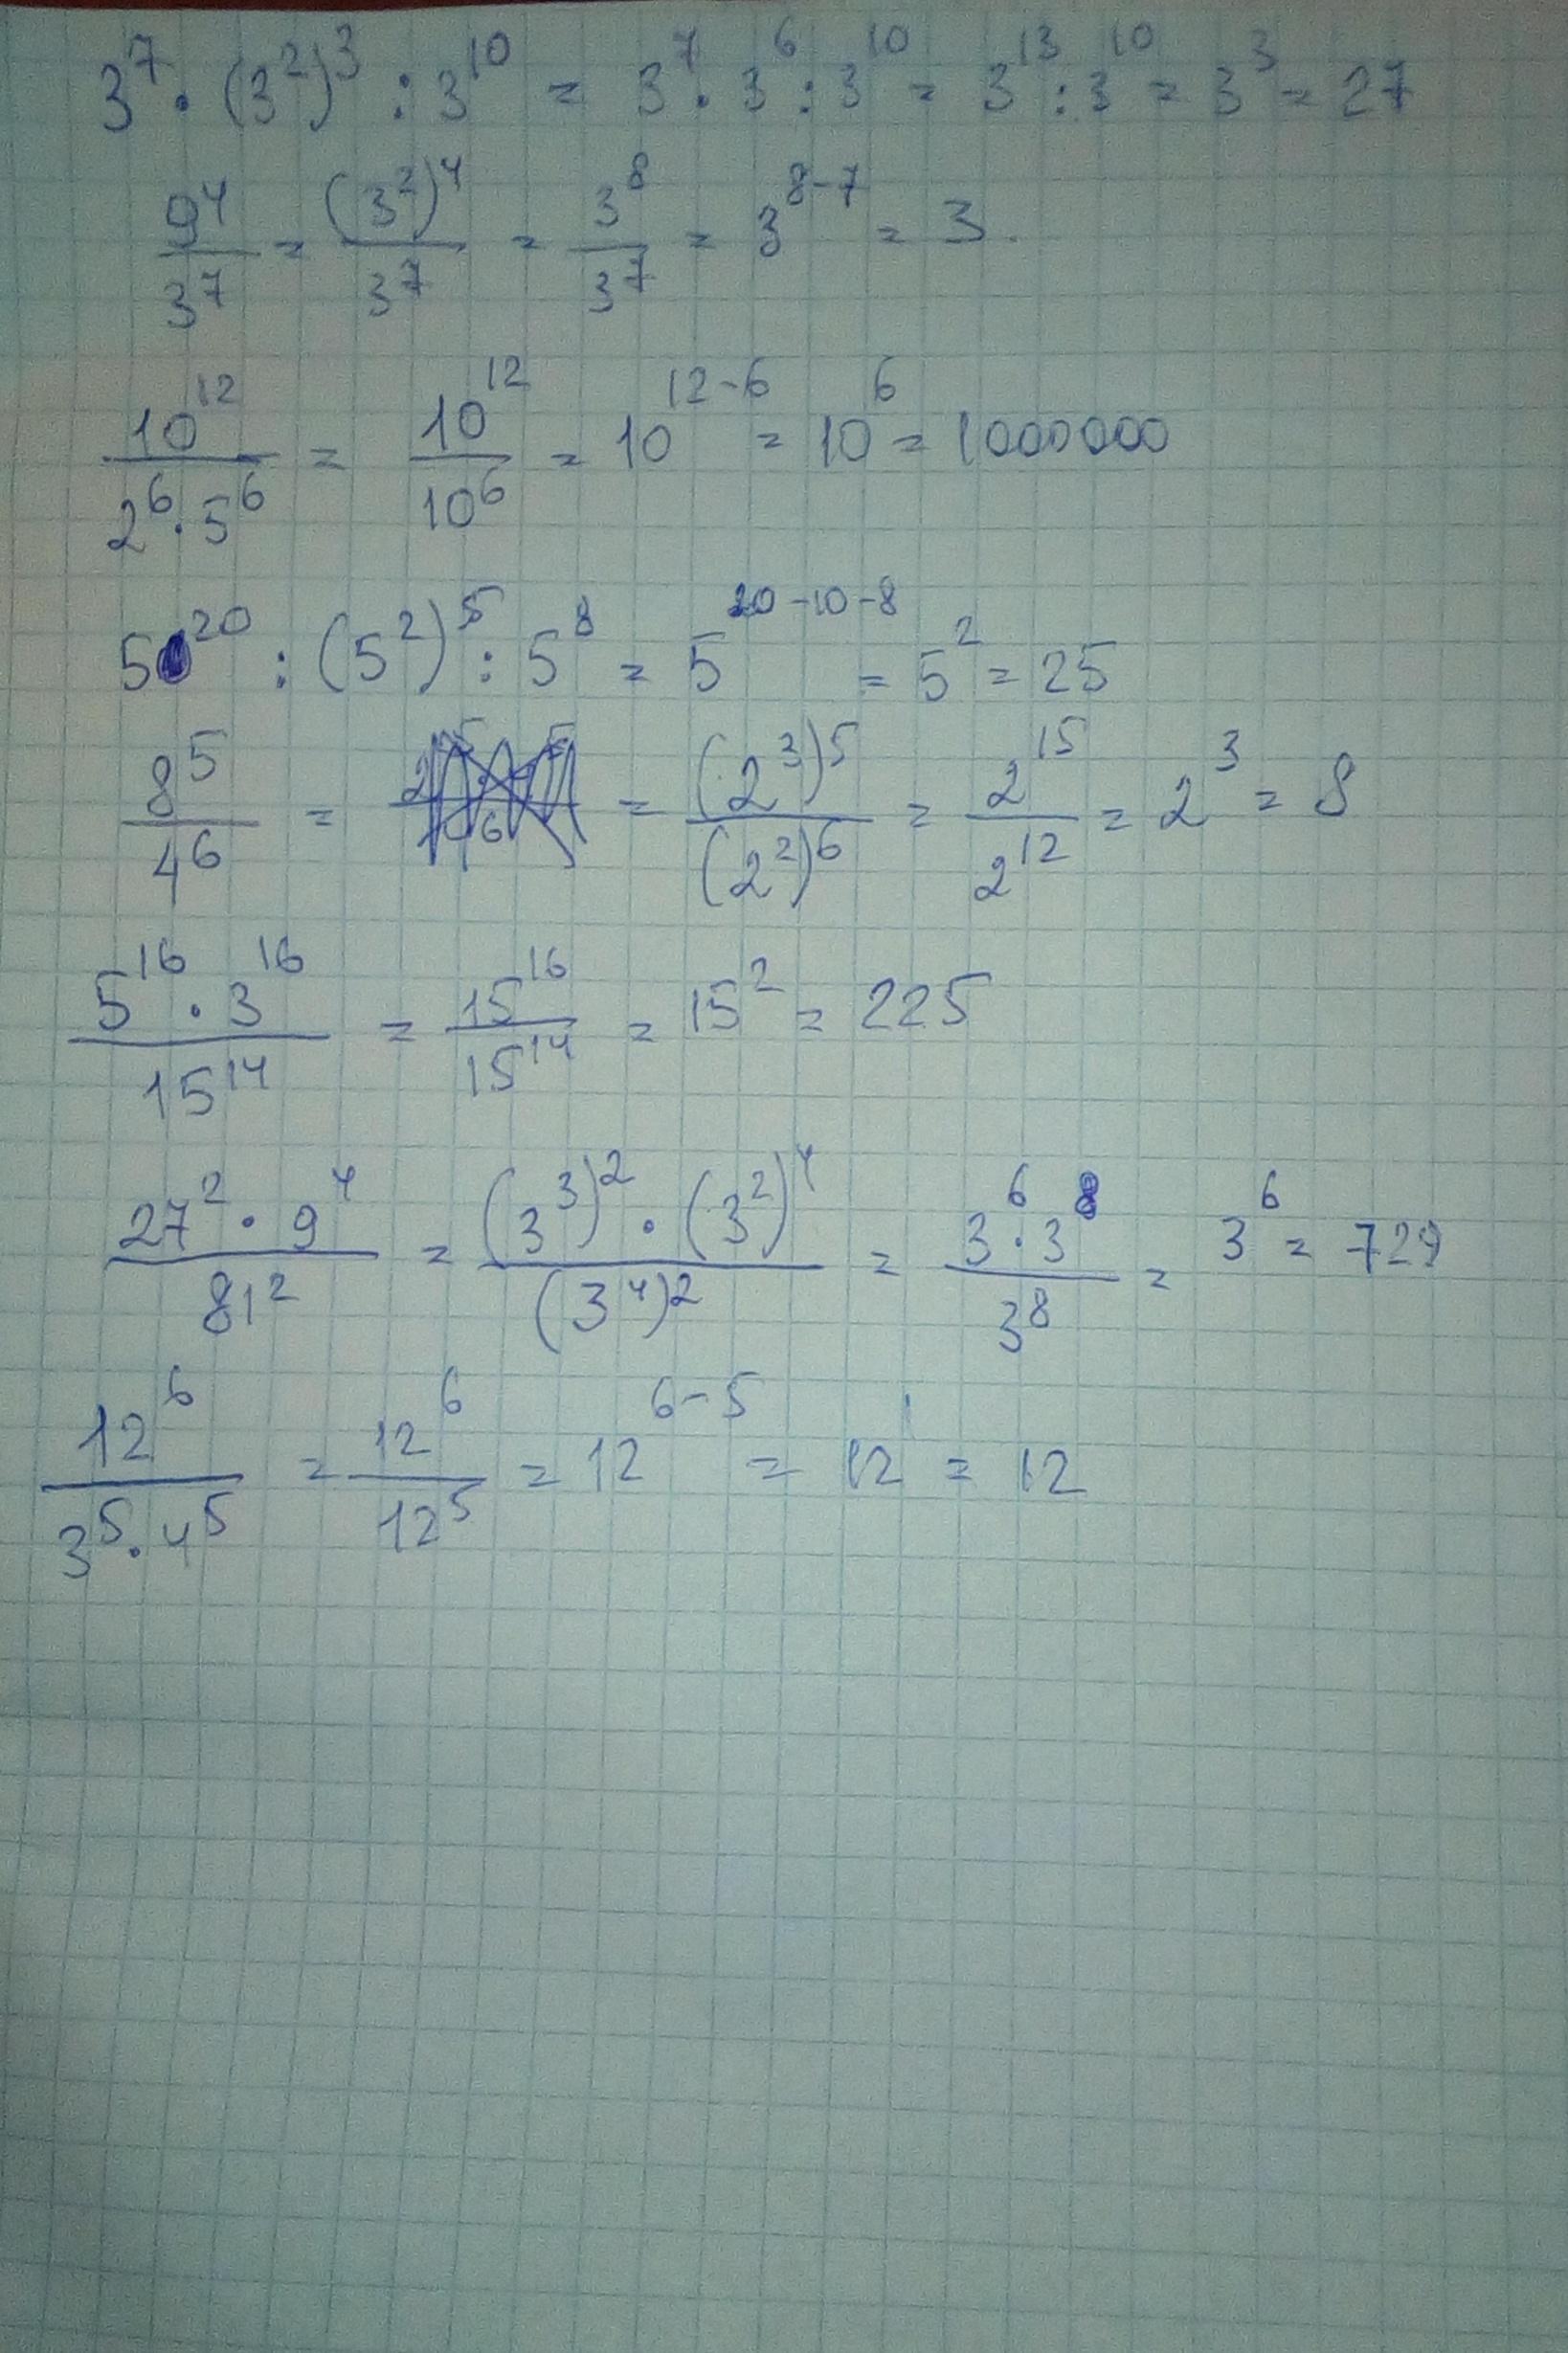 3^7 · (3^2)^3 : 3^10 = 3^7 · 3^6 : 3^10 = 3^13 : 3^10 = 3^3 = 27
9^4/3^7 = (3^2)^4/3^7 = 3^8/3^7 = 3^(8-7) = 3.
10^12/(2^6 · 5^6) = 10^12/10^6 = 10^(12-6) = 10^6 = 1000000
5^20 : (5^2)^5 : 5^8 = 5^(20-10-8) = 5^2 = 25
8^5/4^6 = = (2^3)^5/(2^2)^6 = 2^15/2^12 = 2^3 = 8
(5^16 · 3^16)/15^14 = 15^16/15^14 = 15^2 = 225
(27^2 · 9^4)/81^2 = ((3^3)^2 · (3^2)^4)/(3^4)^2 = (3^6 · 3^8)/3^8 = 3^6 = 729
12^6/(3^5 · 4^5) = 12^6/12^5 = 12^(6-5) = 12^1 = 12